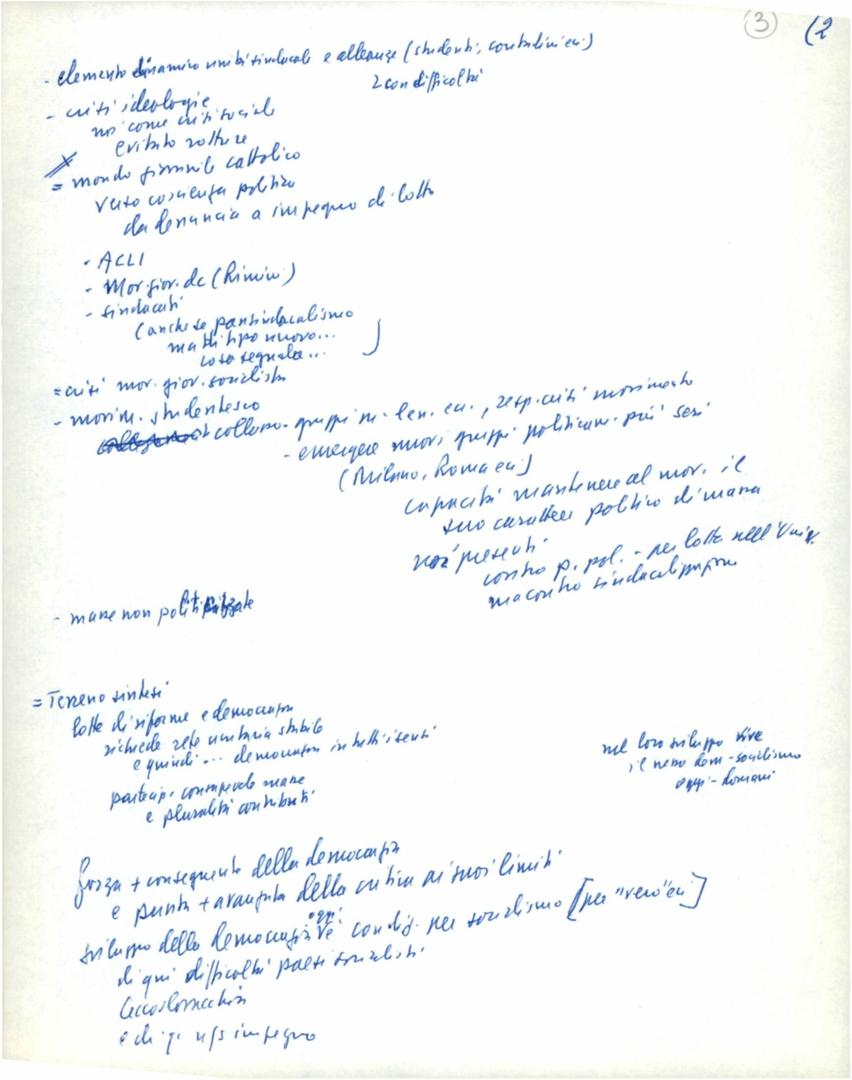 3
(2
- elemento dinamico unità sindacale e alleanze (studenti, contadini ecc)
2 con difficoltà
- crisi ideologie
noi come crisi sociale
evitato rotture
= mondo giovanile cattolico
verso coscienza politica
da denuncia a impegno di lotta
- ACLI
- Mov. giov. dc (Rimini)
- sindacati
(anche se pansindacalismo
ma di tipo nuovo...
cosa segnala...
= crisi mov. giov. socialista
- movim. studentesco
collasso - gruppi m-len. ecc., resp. crisi movimento
- emergere nuovi gruppi politicam. più seri
(Milano, Roma ecc)
capacità mantenere al mov. il
suo carattere politico di massa
noi presenti
contro p. pol. - per lotta nell'Univ.
ma contro sindacalizzazione
- masse non politicizzate
= Terreno sintesi
lotte di riforme e democrazia
richiede rete unitaria stabile
e quindi ... democrazia in tutti i sensi
partecip. consapevole masse
e pluralità contributi
nel loro sviluppo vive
il nesso dem-socialismo
oggi - domani
forza + conseguente della democrazia
e punta + avanzata della critica ai suoi limiti
oggi
sviluppo della democrazia è condiz. per socialismo [per "vero" ecc]
di qui difficoltà paesi socialisti
Cecoslovacchia
e di qui ns impegno